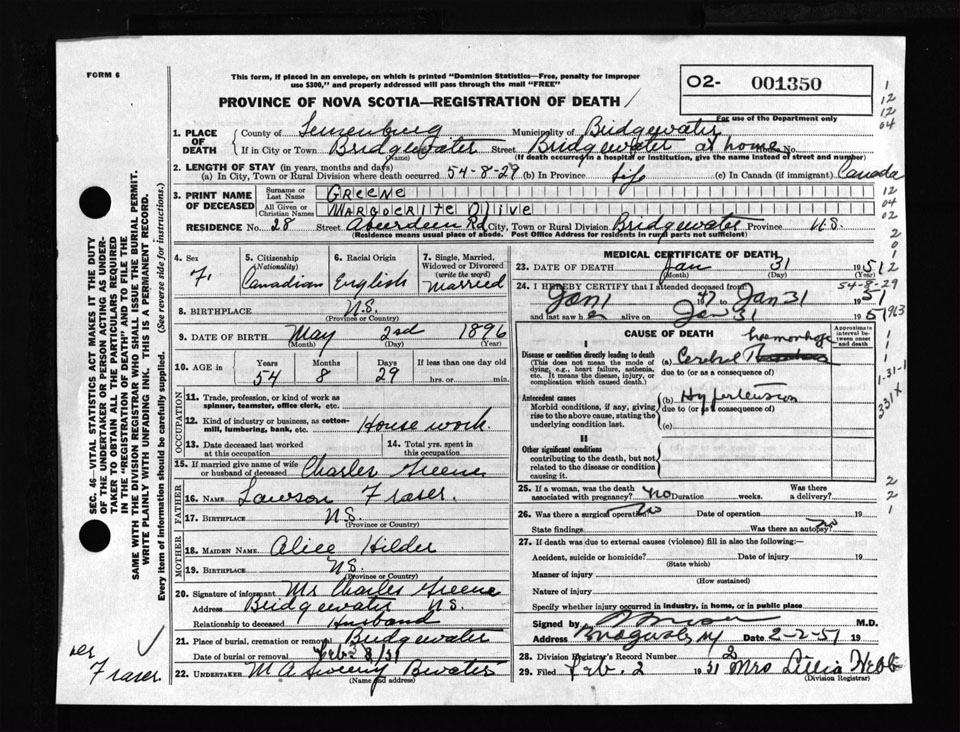 FORM 6
This form, if placed in an envelope, on which is printed "Dominion Statistics—Free, penalty for improper
use $300," and properly addressed will pass through the mail "FREE"
O2- 001350
For use of the Department only
PROVINCE OF NOVA SCOTIA—REGISTRATION OF DEATH
1. PLACE OF DEATH County of Lunenburg Municipality of Bridgewater
If in City or Town Bridgewater Street Bridgewater at home House No.
(Name) (If death occurred in a hospital or institution, give the name instead of street and number)
2. LENGTH OF STAY (in years, months and days)
(a) In City, Town or Rural Division where death occurred 54-8-29 (b) In Province Life (c) In Canada (if immigrant) Canada
3. PRINT NAME OF DECEASED Surname or Last Name GREENE
All Given or Christian Names MARGUERITE OLIVE
RESIDENCE No. 28 Street Aberdeen Rd City, Town or Rural Division Bridgewater Province N.S.
(Residence means usual place of abode. Post Office Address for residents in rural parts not sufficient)
4. Sex F.
5. Citizenship (Nationality) Canadian
6. Racial Origin English
7. Single, Married, Widowed or Divorced (write the word) Married
8. BIRTHPLACE N.S.
(Province or Country)
9. DATE OF BIRTH May 2nd 1896
(Month) (Day) (Year)
10. AGE in Years 54 Months 8 Days 29 If less than one day old
hrs. or min.
OCCUPATION
11. Trade, profession, or kind of work as spinner, teamster, office clerk, etc.
12. Kind of industry or business, as cotton-mill, lumbering, bank, etc. House work.
13. Date deceased last worked at this occupation
14. Total yrs. spent in this occupation
15. If married give name of wife or husband of deceased Charles Greene
FATHER
16. NAME Lawson Fraser.
17. BIRTHPLACE N.S.
(Province or Country)
MOTHER
18. MAIDEN NAME Alice Hilder
19. BIRTHPLACE N.S.
(Province or Country)
20. Signature of informant Mr Charles Greene
Address Bridgewater N.S.
Relationship to deceased Husband
21. Place of burial, cremation or removal Bridgewater
Date of burial or removal Feb 3/51
22. UNDERTAKER M A Sweeny B.water
(Name and address)
MEDICAL CERTIFICATE OF DEATH
23. DATE OF DEATH Jan 31 1951
(Month) (Day)
54-8-29
24. I HEREBY CERTIFY that I attended deceased from
Jan 1 47 to Jan 31 51
and last saw her alive on Jan 31 1951
CAUSE OF DEATH
Approximate interval between onset and death
I
Disease or condition directly leading to death
(This does not mean the mode of dying, e.g., heart failure, asthenia, etc. It means the disease, injury, or complication which caused death.)
(a) Cerebral haemorrhage
due to (or as a consequence of)
Antecedent causes
Morbid conditions, if any, giving rise to the above cause, stating the underlying condition last.
(b) Hypertension
due to (or as a consequence of)
(c)
II
Other significant conditions
contributing to the death, but not related to the disease or condition causing it.
25. If a woman, was the death associated with pregnancy? No Duration weeks. Was there a delivery?
26. Was there a surgical operation? No Date of operation 19
State findings Was there an autopsy? No
27. If death was due to external causes (violence) fill in also the following:—
Accident, suicide or homicide? Date of injury 19
(State which)
Manner of injury
(How sustained)
Nature of injury
Specify whether injury occurred in industry, in home, or in public place
Signed by M.D.
Address Date 2-2-51 19
28. Division Registrar's Record Number 2
29. Filed Feb. 2 1951 Mrs Lillia Hebb
(Division Registrar)
SEC. 46—VITAL STATISTICS ACT MAKES IT THE DUTY
OF THE UNDERTAKER OR PERSON ACTING AS UNDER-
TAKER TO OBTAIN ALL THE PARTICULARS REQUIRED
IN THE "REGISTRATION OF DEATH" AND TO FILE THE
SAME WITH THE DIVISION REGISTRAR WHO SHALL ISSUE THE BURIAL PERMIT.
WRITE PLAINLY WITH UNFADING INK. THIS IS A PERMANENT RECORD.
Every item of information should be carefully supplied. (See reverse side for instructions.)
Fraser.
1
12
12
04
12
04
02
2
0
1
2
913
1
1
1-31-1
331X
2
2
1